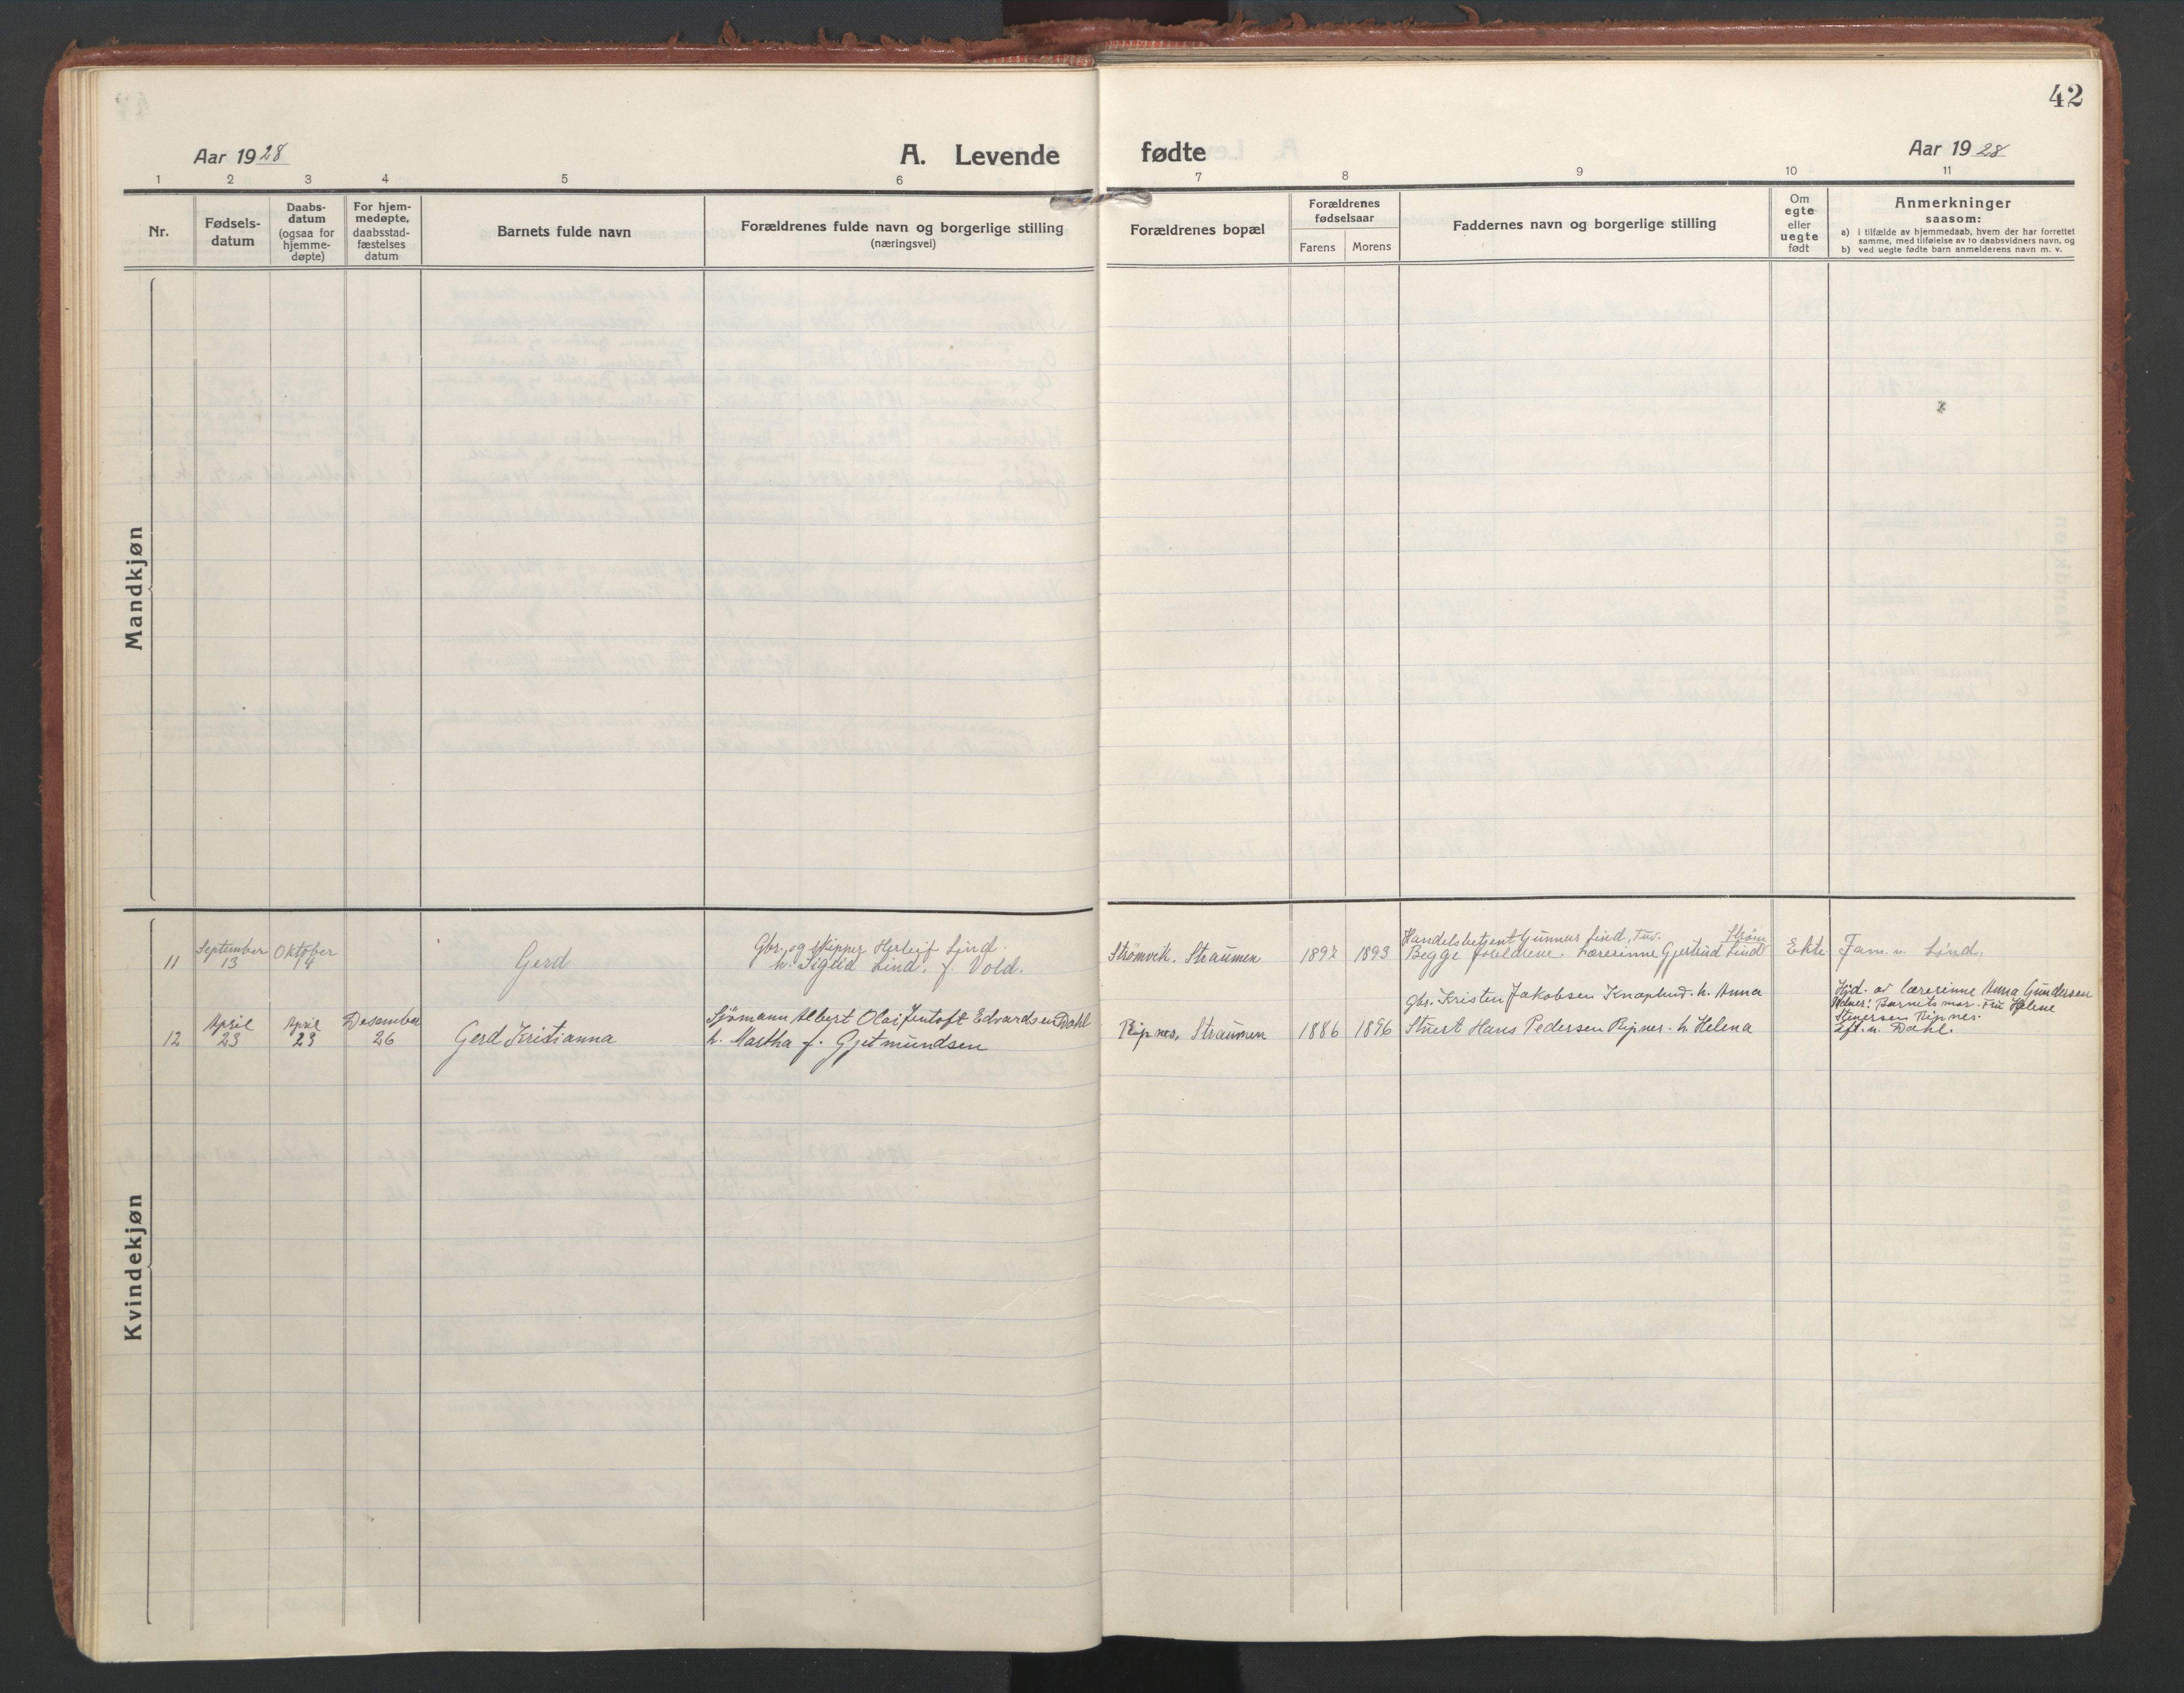 42
Aar 1928
A. Levende
fødte
Aar 1928
1 2 3 4 5 6 7 8 9 10 11
Nr.
Fødsels-
datum
Daabs-
datum
(ogsaa for
hjemme-
døpte)
For hjem-
medøpte,
daabsstad-
fæstelses
datum
Barnets fulde navn
Forældrenes fulde navn og borgerlige stilling
(næringsvei)
Forældrenes bopæl
Forældrenes
fødselsaar
Farens Morens
Faddernes navn og borgerlige stilling
Om
egte
eller
uegte
født
Anmerkninger
saasom:
a) i tilfælde av hjemmedaab, hvem der har forrettet
samme, med tilføielse av to daabsvidners navn, og
b) ved uegte fødte barn anmelderens navn m. v.
Mandkjøn
Kvindekjøn
11
September
13
Oktober
14
Gerd
Gbr. og skipper Herleif Lind.
h. Sigrid Lind. f. Vold.
Strømvik. Straumen
1897 1893
Handelsbetjent Gunnar Lind, Tuv. Strøm
Begge foreldrene. Lærerinne Gjertrud Lind
Ekte
Fam. n. Lind.
12
April
23
April
23
Desember
26
Gerd Kristianna
Sjømann Albert Olai Jentoft Edvardsen Dahl
h. Martha f. Gjetmundsen
Ripnes, Straumen
1886 1896
Gbr. Kristen Jakobsen Knaplund. h. Anna
Stuert Hans Pedersen Ripnes. h. Helena
Hjd. av lærerinne Anna Gundersen
Vidner: Barnets mor. Fru Helene
Stenersen Ripnes.
Eft. n. Dahl.